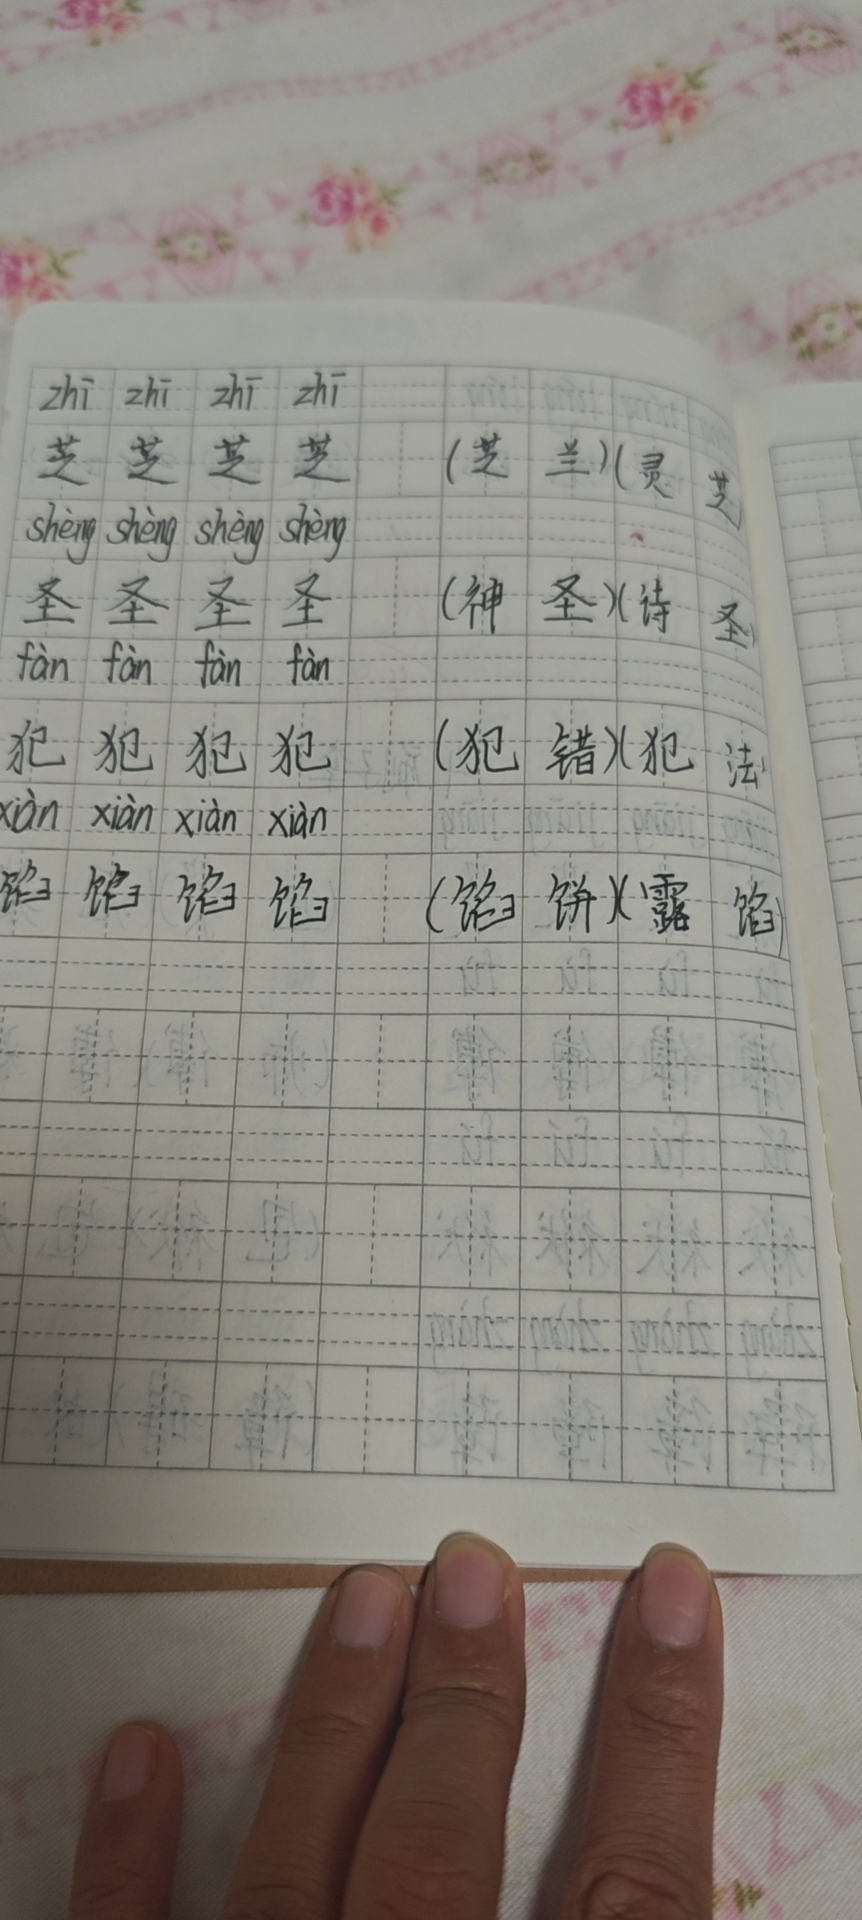 zhī zhī zhī zhī
芝 芝 芝 芝 (芝兰)(灵芝)
shèng shèng shèng shèng
圣 圣 圣 圣 (神圣)(诗圣)
fàn fàn fàn fàn
犯 犯 犯 犯 (犯错)(犯法)
xiàn xiàn xiàn xiàn
馅 馅 馅 馅 (馅饼)(露馅)